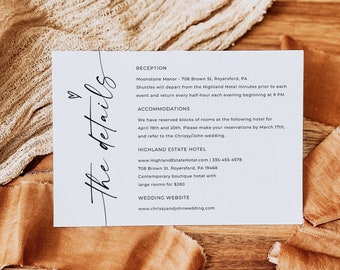 the details
RECEPTION
Moonstone Manor - 708 Brown St, Royersford, PA
Shuttles will depart from the Highland Hotel minutes prior to each
event and return every half-hour each evening beginning at 9 PM.
ACCOMMODATIONS
We have reserved blocks of rooms at the following hotel for
April 19th and 20th. Please make your reservations by March 17th,
and refer to the Chrissy and John wedding.
HIGHLAND ESTATE HOTEL
www.HighlandEstateHotel.com | 335-455-4578
708 Brown St. Royersford, PA 19468
Contemporary boutique hotel with
large rooms for $280
WEDDING WEBSITE
www.chrissyandjohnwedding.com